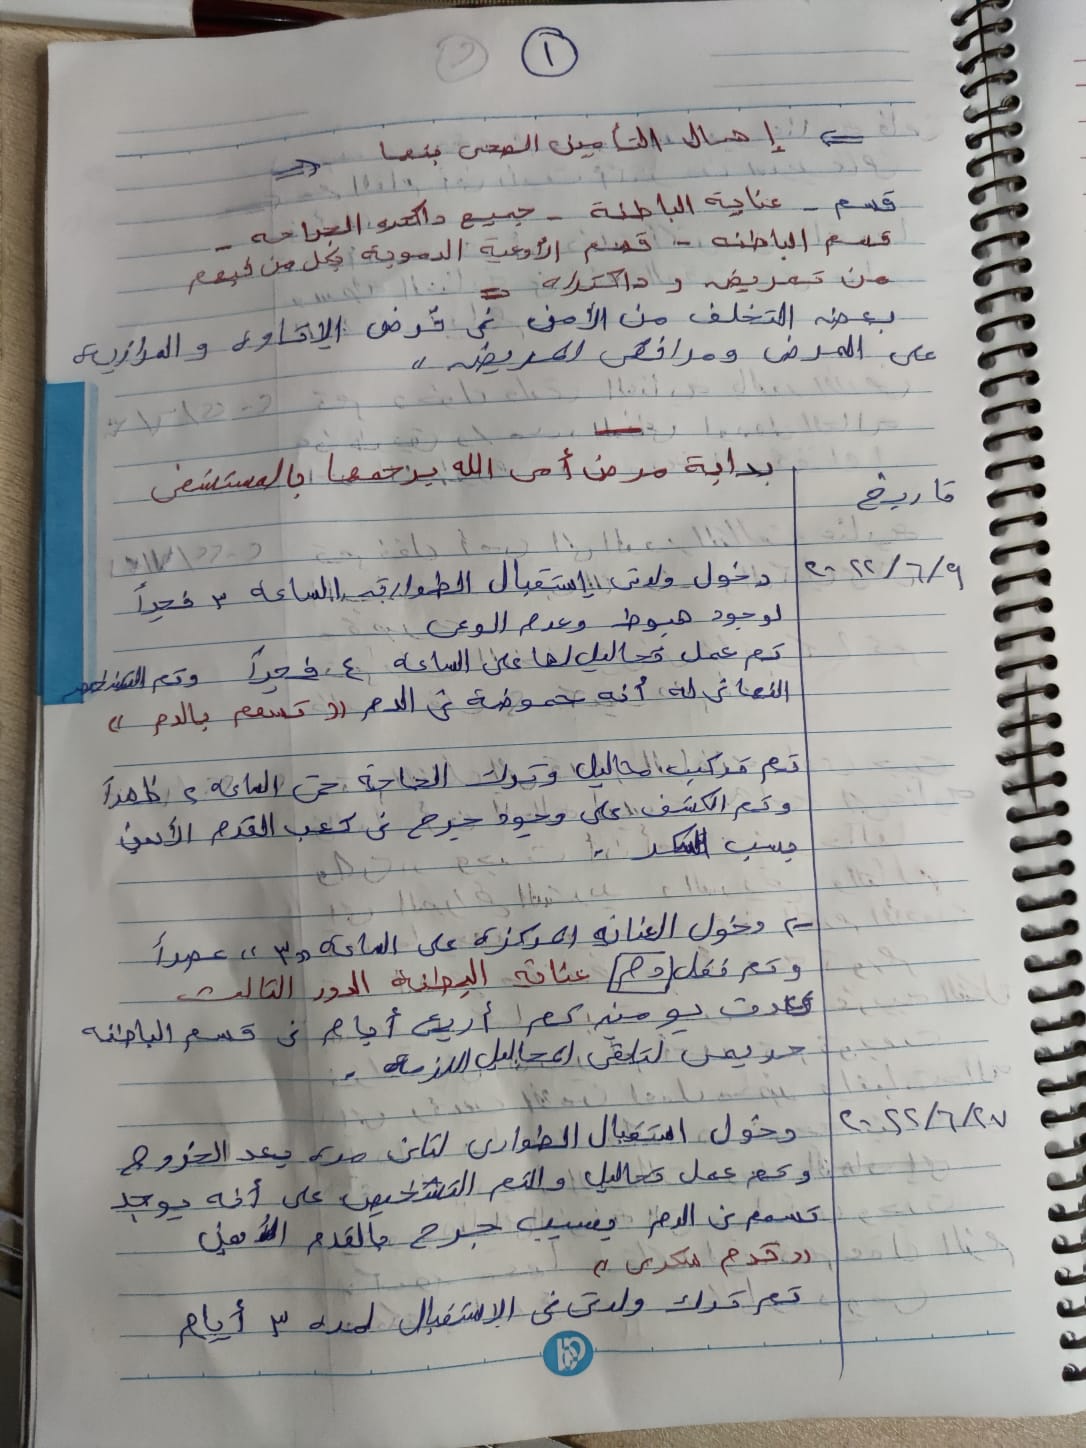 ١
إهمال التأمين الصحى ببنها
قسم - عناية الباطنة - جميع دكاترة الجراحة -
قسم الباطنه - قسم الأوعية الدموية بكل من فيهم
من تمريض و داكتره =
بعض التخلف من الأمن فى فرض الإتاوه و
على المرض ومرافقى المريض "
بداية مرض أمى الله يرحمها بالمستشفى
تاريخ
٢٠٢٢/٦/٩
دخول ولدتى إستقبال الطوارئ الساعة ٣ فجراً
لوجود هبوط وعدم الوعى
تم عمل تحاليل لها على الساعه ٤ فجراً وتم التشخيص
النهائى له أنه حموضة فى الدم (( تسمم بالدم ))
تم تركيب محاليل وترك الحاجة حتى الساعة ٢ ظهراً
وتم الكشف على وجود جرح فى كعب القدم الأيمن
بسبب السكر .
= دخول العنايه المركزة على الساعة "٣" عصراً
وتم نقل دم عناية البطنة الدور الثالث
يومين أربع أيام فى قسم الباطنه
حريمى لتلقى المحاليل اللازمه .
٢٠٢٢/٦/٢٧
دخول استقبال الطوارئ لثانى مره بعد الخروج
وتم عمل تحاليل والتم التشخيص على أنه يوجد
تسمم فى الدم بسبب جرح بالقدم الأيمن
(( قدم سكرى ))
تم ترك ولدتى فى الاستقبال لمده ٣ أيام